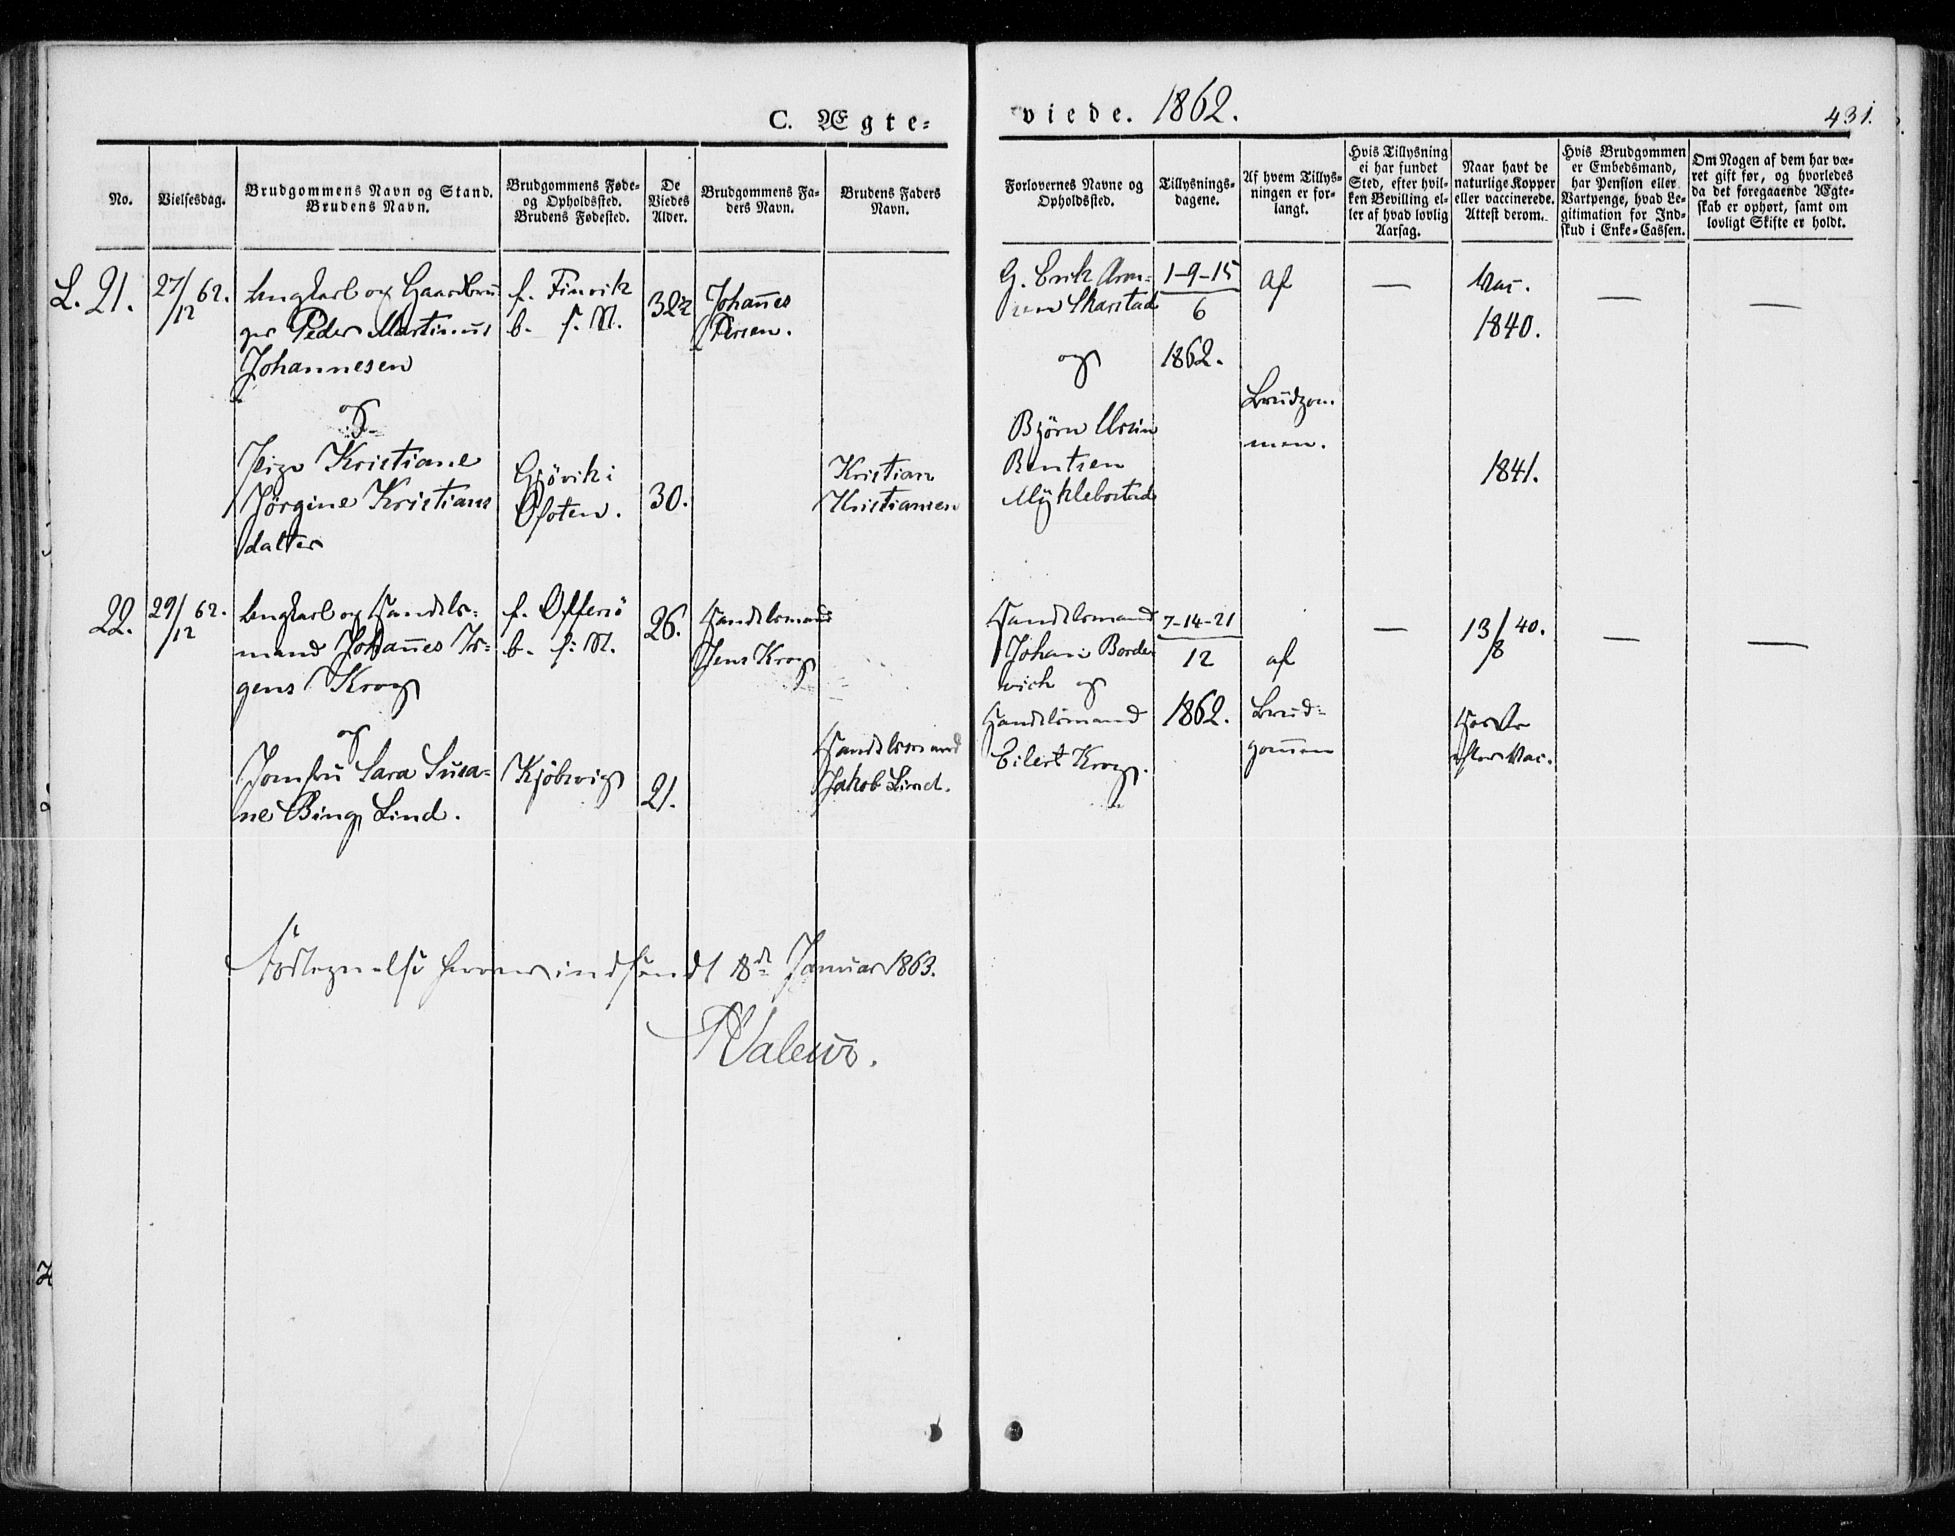 C. Ægte=
viede. 1862.
431.
No.
Vielsesdag.
Brudgommens Navn og Stand.
Brudens Navn.
Brudgommens Føde-
og Opholdssted.
Brudens Fødested.
De
Viedes
Alder.
Brudgommens Fa-
ders Navn.
Brudens Faders
Navn.
Forlovernes Navne og
Opholdssted.
Tillysnings-
dagene.
Af hvem Tillys-
ningen er for-
langt.
Hvis Tillysning
ei har fundet
Sted, efter hvil-
ken Bevilling el-
ler af hvad lovlig
Aarsag.
Naar havt de
naturlige Kopper
eller vaccinerede.
Attest derom.
Hvis Brudgommen
er Embedsmand,
har Pension eller
Vartpenge, hvad Le-
gitimation for Ind-
skud i Enke-Cassen.
Om Nogen af dem har væ-
ret gift før, og hvorledes
da det foregaaende Ægte-
skab er ophørt, samt om
lovligt Skifte er holdt.
L. 21.
27/12 62.
Ungkarl og Gaardbru
ger Peder Martinus
Johannesen
og
Pige Kristiane
Jørgine Kristians
datter
f. Finvik
b. s. St.
Gjøvik i
Ofoten.
32½
30.
Johannes
Persen.
Kristian
Kristiansen
G. Erik Arn=
sen Skarstad
og
Björn Ursin
Bentsen
Myklebostad
1-9-15
6
1862.
af
Brudgom
men.
—
Vac.
1840.
1841.
—
—
22.
29/12 62.
Ungkarl og Handels=
mand Johannes Ir=
gens Krog
og
Jomfru Sara Susa=
ne Bing Lind.
f. Offersö
b. s: St.
Kjöbvig
26.
21.
Handelsmand
Jens Krog
Handelsmand
Jakob Lind.
Handelsmand
Johan Borde
vich og
Handelsmand
Eilert Krog.
7-14-21
12
1862.
af
Brud=
gommen
—
13/8 40.
efter Vac.
—
—
Fortegnelse herover indsendt 18de Januar 1863.